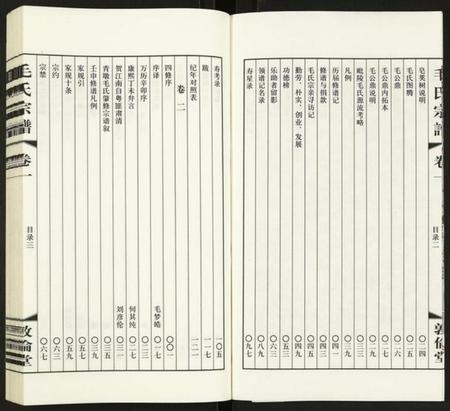 毛氏宗譜
卷一
目录二
敦倫堂
皂荚树说明
毛氏图腾 〇二五
毛公鼎 〇二六
毛公鼎内拓本
毛公鼎说明
毗陵毛氏源流考略
凡例 〇三九
历届修谱记 〇四一
修谱与捐款
毛氏宗亲寻访记
勤劳、朴实、创业、发展
功德榜 〇五三
乐助者留影 〇六三
领谱记名录 〇八九
寿星录 〇九七
寿考录 一〇五
跋 一一七
纪年对照表 一二一
卷二
四修序 〇〇一
序译 毛梦皓 〇一七
万历辛卯序 〇二三
康熙丁未弁言 何其纯 〇二七
贺江南自粤匪肃清 刘彦伦 〇三一
青墩毛氏肇修宗谱叙 〇三五
壬申修谱凡例 〇三九
家规引 〇五七
家规十条 〇五九
宗约 〇六三
宗禁 〇六七
毛氏宗譜
卷一
目录三
敦倫堂